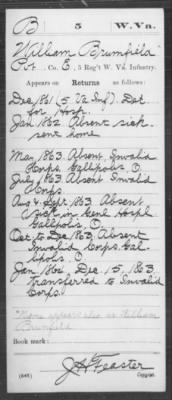 B 5 W. Va.
William Brumfild
Pvt., Co. E, 5 Reg't W. Va. Infantry.
Appears on Returns as follows:
Dec 1861 (5 Va Inf). Det.
for Hosp.
Jan 1862 Absent sick
sent home
May 1863 Absent Invalid
Corps Gallipolis, O.
July 1863 Absent Invalid
Corps
Aug & Sept 1863 Absent
sick in Genl Hospl
Gallipolis, O.
Oct to Dec 1863 Absent
Invalid Corps. Gal-
lipolis O.
Jan 1864, Dec. 15, 1863,
Transferred to Invalid
Corps.
Name appears also as William
Brumfield
Book mark:
J. H. Feaster
(646) Copyist.